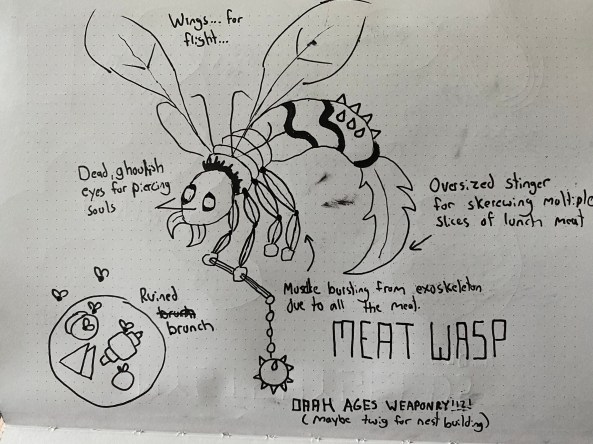 Wings... for
flight...
Dead, ghoulish
eyes for piercing
souls
Oversized stinger
for skerewing multiple
slices of lunch meat
Muscle bursting from exoskeleton
due to all the meat.
Ruined
brunch
MEAT WASP
DARK AGES WEAPONRY!!?!
(maybe twig for nest building)